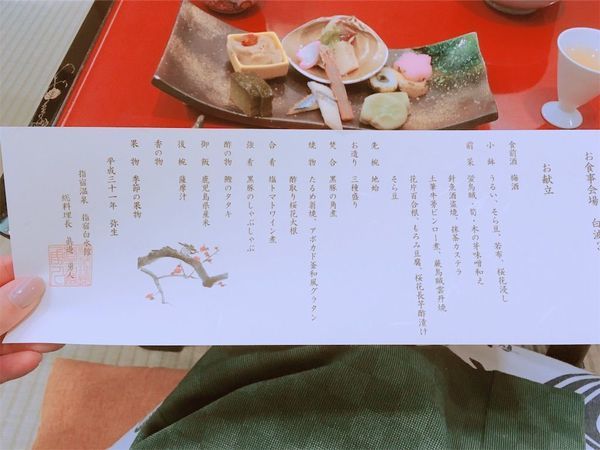 お食事会場　白波
お献立
食前酒　梅酒
小鉢　うるい、そら豆、若布、桜花浸し
前菜　蛍烏賊・筍・木の芽味噌和え
針魚酒盗焼、抹茶カステラ
土筆牛蒡ピンロー煮、蕨烏賊雲丹焼
花片百合根、もろみ豆腐、桜花長芋酢漬け
そら豆
先椀　地蛤
お造り　三種盛り
焚合　黒豚の角煮
焼物　たるめ翁焼、アボカド釜和風グラタン
酢取り桜花大根
合肴　塩トマトワイン煮
強肴　黒豚のしゃぶしゃぶ
酢の物　鰹のタタキ
御飯　鹿児島県産米
後椀　薩摩汁
香の物
果物　季節の果物
平成三十一年　弥生
指宿温泉　指宿白水館
総料理長